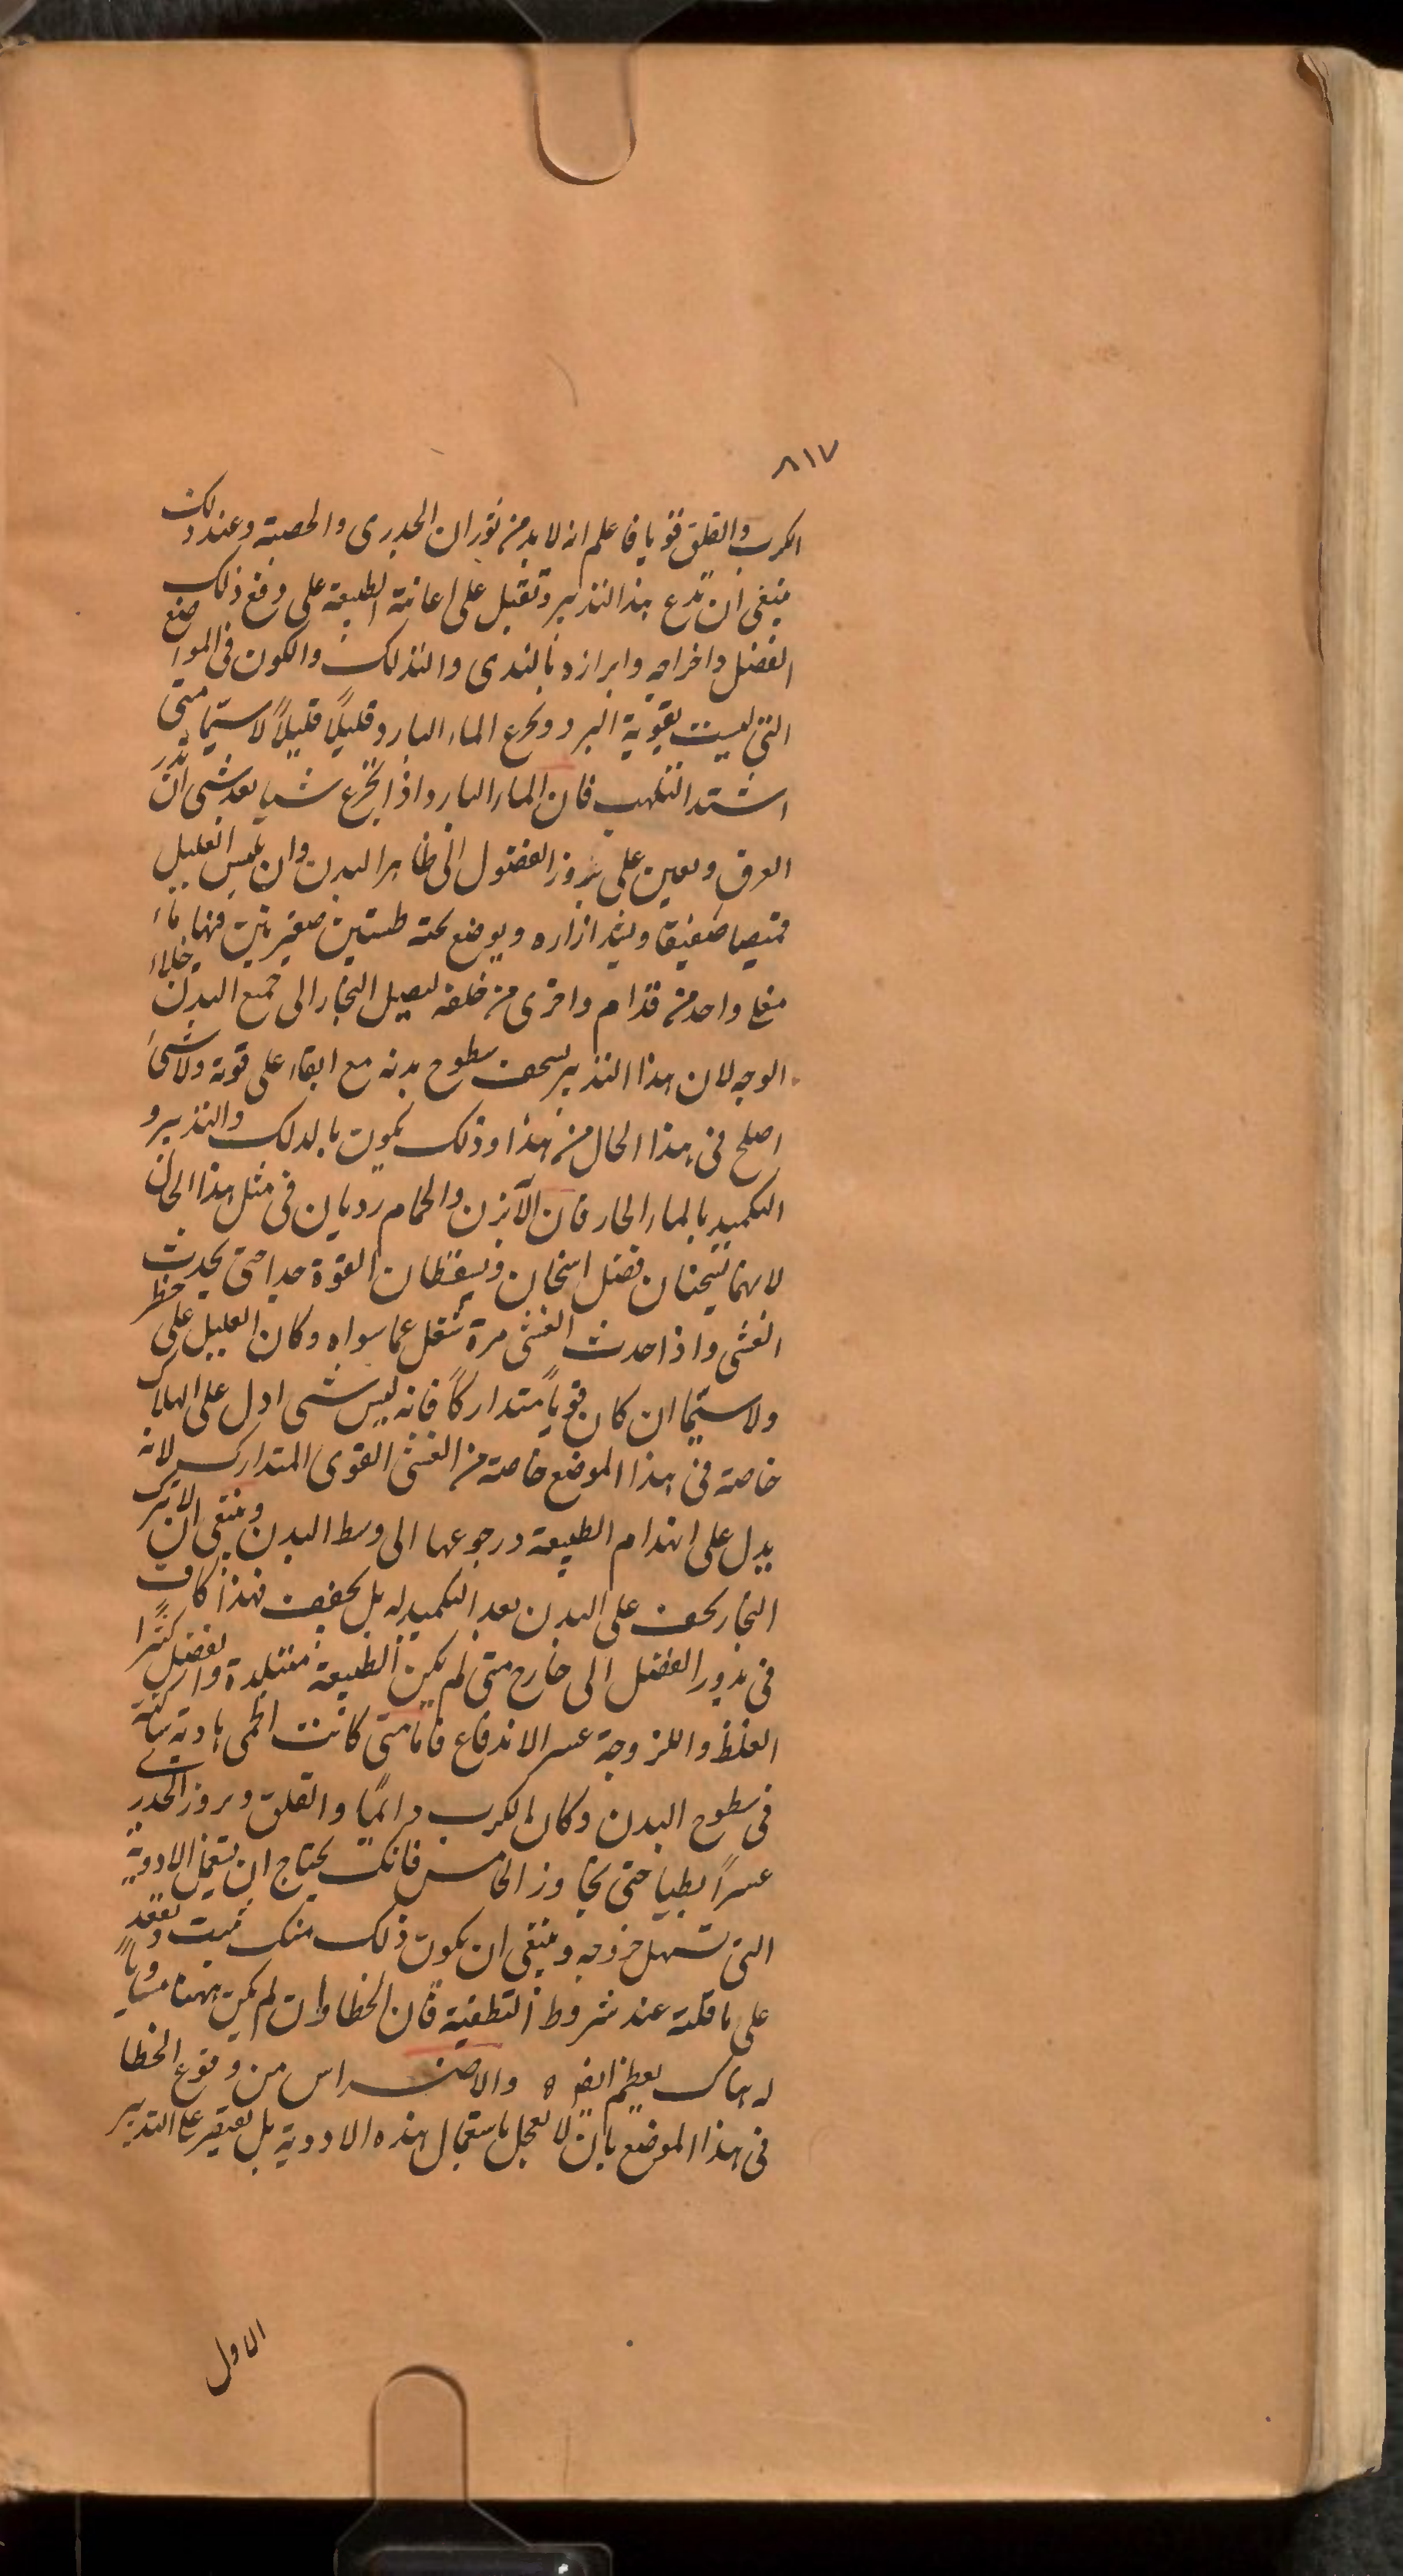 ٨١٧
الكرب والقلق قويا فاعلم انه لا بد من ثوران الجدرى والحصبة وعند ذلك
ينبغى ان تدع هذا التدبير وتقبل على اعانة الطبيعة على دفع ذلك
الفضل واخراجه وابرازه بالتدى والتدلك والكون فى المواضع
التى ليست بقوية البرد وتجرع الماء البارد قليلاً قليلاً لا سيّما متى
اشتد التلهب فان الماء البارد اذا تجرع شيا بعد شى ادّر
العرق ويعين على بروز الفضول الى ظاهر البدن وان يلبس العليل
قميصا صفيقا ويشد ازاره ويوضع تحته طستين صغيرتين فيهما ماء
مغلى واحد من قدام واخرى من خلفه ليصل البخار الى جميع البدن خلاء
الوجه لان هذا التدبير يسخف سطوح بدنه مع ابقاء على قوته ولا شىء
اصلح فى هذا الحال من هذا وذلك يكون بالدلك والتدبير و
التكميد بالماء الحار فان الآبزن والحمام رديان فى مثل هذا الحال
لانهما يسخنان فضل اسخان ويسقطان القوة جدا حتى يحدث
الغشى واذا حدث الغشى مرة شغل عما سواه وكان العليل على خطر
ولا سيّما ان كان قوياً متداركاً فانه ليس شى ادل على الهلاك
خاصة فى هذا الموضع خاصة من الغشى القوى المتدارك لانه
يدل على انهزام الطبيعة ورجوعها الى وسط البدن وينبغى ان لا يترك
البخار يجف على البدن بعد التكميد له بل يجفف فهذا كاف
فى بدور الفضل الى خارج متى لم يكن الطبيعة متبلدة والفضل كثيرا
الغلظ واللزوجة عسر الاندفاع فاما متى كانت الحمى هادية ساكنة
فى سطوح البدن وكان الكرب دائما والقلق وبروز الجدرى
عسراً بطيا حتى تجاوز الخامس فانك تحتاج ان تستعمل الادوية
التى تسهل خروجه وينبغى ان يكون ذلك منك تثبت وتفقد
على ما قلته عند شروط التطفية فان الخطا وان لم يكن ههنا مساوياً
له هناك بعظم الضرر والاحتراس من وقوع الخطا
فى هذا الموضع بان لا تعجل باستعمال هذه الادوية بل تقتصر على التدبير
الاول